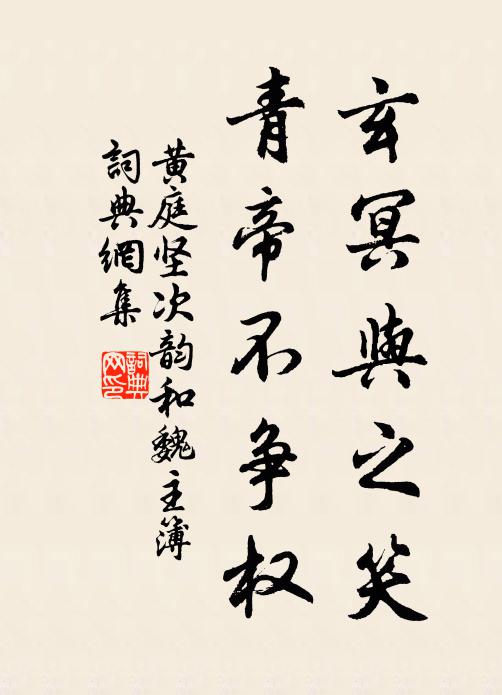 玄冥與之笑
青帝不争权
黄庭坚次韵和魏主簿
詞典網集
詞典
网印